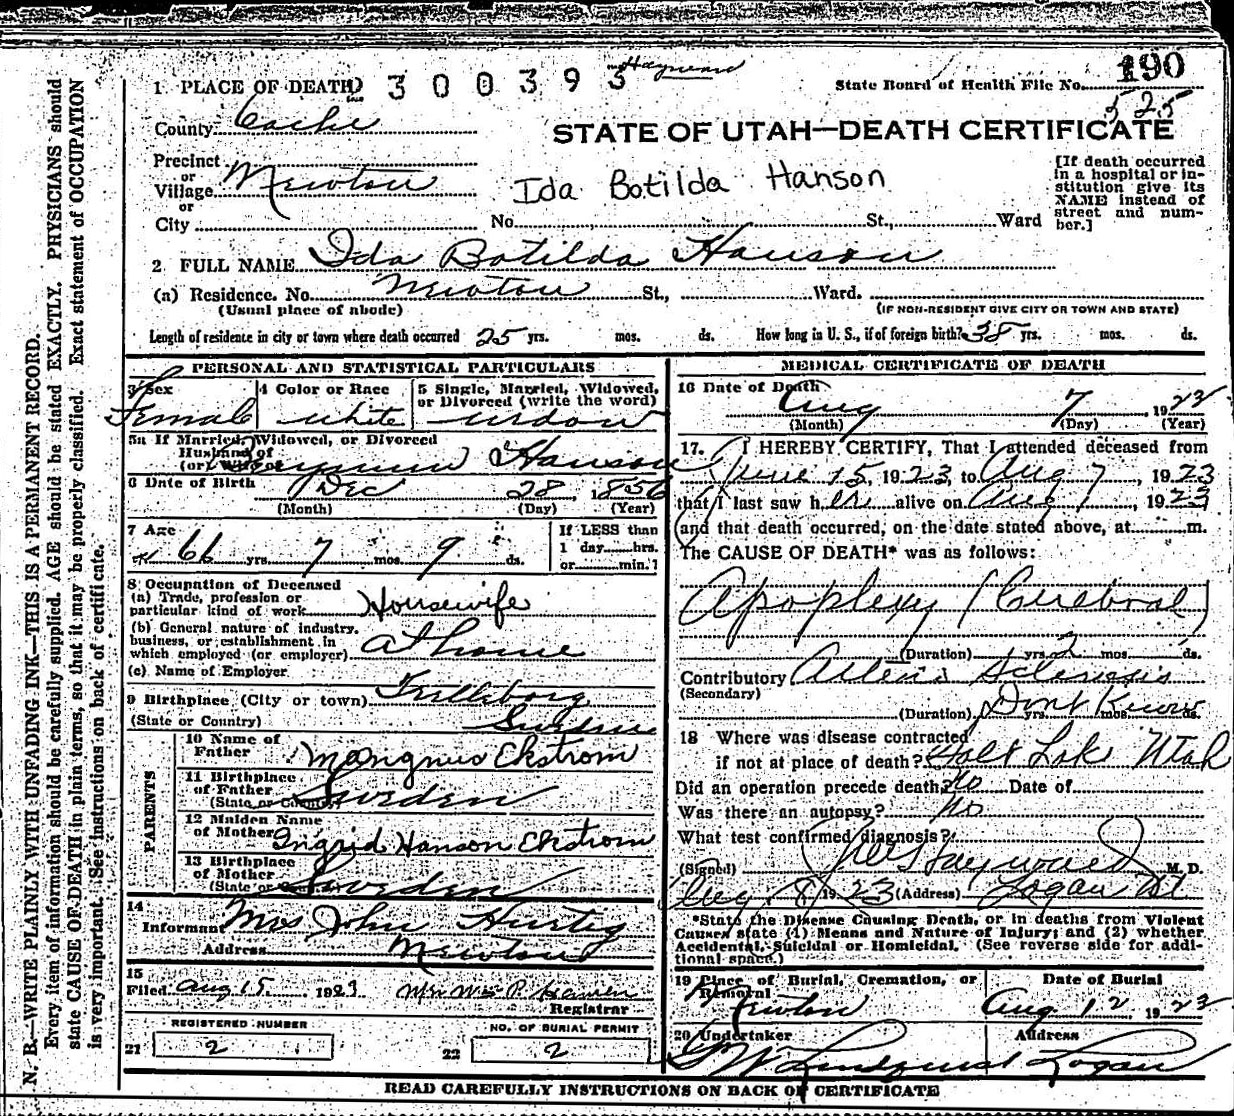 190
1 PLACE OF DEATH 300393 Hayward State Board of Health File No.
525
County Cache
STATE OF UTAH—DEATH CERTIFICATE
Precinct
or
Village Newton
or
City
Ida Botilda Hanson
No. St., Ward
[If death occurred
in a hospital or in-
stitution give its
NAME instead of
street and num-
ber.]
2 FULL NAME Ida Botilda Hanson
(a) Residence. No. Newton St., Ward.
(Usual place of abode) (IF NON-RESIDENT GIVE CITY OR TOWN AND STATE)
Length of residence in city or town where death occurred 25 yrs. mos. ds. How long in U. S., if of foreign birth? 38 yrs. mos. ds.
PERSONAL AND STATISTICAL PARTICULARS
3 Sex
Female
4 Color or Race
white
5 Single, Married, Widowed,
or Divorced (write the word)
widow
5a If Married, Widowed, or Divorced
Husband of
(or) Wife of Hanson
6 Date of Birth Dec 28, 1856
(Month) (Day) (Year)
7 Age
66 yrs. 7 mos. 9 ds.
If LESS than
1 day......hrs.
or......min.
8 Occupation of Deceased
(a) Trade, profession or
particular kind of work Housewife
(b) General nature of industry,
business, or establishment in
which employed (or employer) at home
(c) Name of Employer
9 Birthplace (City or town) Trelleborg
(State or Country) Sweden
PARENTS
10 Name of
Father Mangnus Ekstrom
11 Birthplace
of Father
(State or Country) Sweden
12 Maiden Name
of Mother Ingrid Hanson Ekstrom
13 Birthplace
of Mother
(State or Country) Sweden
14
Informant Mrs John
Address Newton
15
Filed Aug 15 1923 Mrs Wm P.
Registrar
REGISTERED NUMBER
21 2
NO. OF BURIAL PERMIT
22 2
MEDICAL CERTIFICATE OF DEATH
16 Date of Death
Aug 7, 1923
(Month) (Day) (Year)
17. I HEREBY CERTIFY, That I attended deceased from
June 15, 1923, to Aug 7, 1923
that I last saw her alive on Aug 7, 1923
and that death occurred, on the date stated above, at......m.
The CAUSE OF DEATH* was as follows:
Apoplexy (Cerebral)
(Duration) yrs. 2 mos. ds.
Contributory Arterio Sclerosis
(Secondary)
(Duration) Dont Know yrs. mos. ds.
18 Where was disease contracted
if not at place of death? Salt Lake Utah
Did an operation precede death? No Date of
Was there an autopsy? No
What test confirmed diagnosis?
(Signed) Hayward M. D.
Aug 8, 1923 (Address) Logan Ut
*State the Disease Causing Death, or in deaths from Violent
Causes state (1) Means and Nature of Injury; and (2) whether
Accidental, Suicidal or Homicidal. (See reverse side for addi-
tional space.)
19 Place of Burial, Cremation, or
Removal
Newton
Date of Burial
Aug 12 1923
20 Undertaker Address
Lundquist Logan
READ CAREFULLY INSTRUCTIONS ON BACK OF CERTIFICATE
N. B.—WRITE PLAINLY WITH UNFADING INK—THIS IS A PERMANENT RECORD.
Every item of information should be carefully supplied. AGE should be stated EXACTLY. PHYSICIANS should
state CAUSE OF DEATH in plain terms, so that it may be properly classified. Exact statement of OCCUPATION
is very important. See instructions on back of certificate.